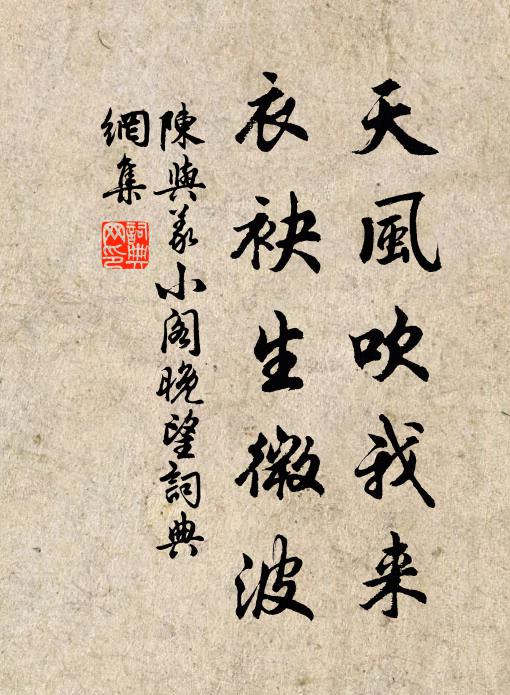 天風吹我来
衣袂生微波
陳與義小閣晚望詞典
網集
詞典
网印